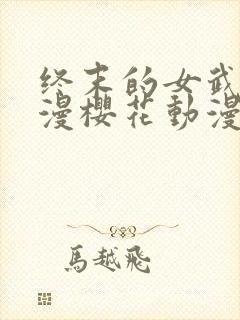 终末的女武
漫樱花动漫
馬越飛